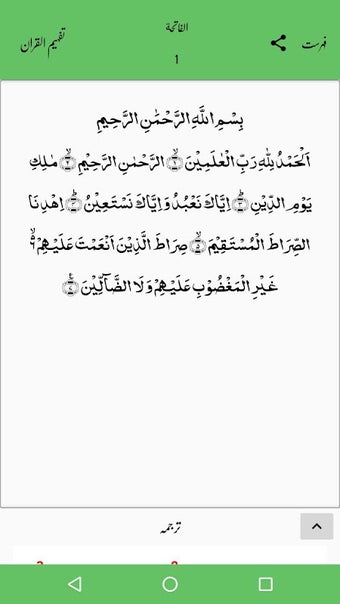 الفاتحة
تفہیم القرآن
فہرست
1
بِسْمِ اللَّهِ الرَّحْمَٰنِ الرَّحِيمِ
اَلْحَمْدُ لِلّٰهِ رَبِّ الْعٰلَمِيْنَ ۙ﴿۱﴾ الرَّحْمٰنِ الرَّحِيْمِ ۙ﴿۲﴾ مٰلِكِ
يَوْمِ الدِّيْنِ ؕ﴿۳﴾ اِيَّاكَ نَعْبُدُ وَ اِيَّاكَ نَسْتَعِيْنُ ؕ﴿۴﴾ اِهْدِنَا
الصِّرَاطَ الْمُسْتَقِيْمَ ۙ﴿۵﴾ صِرَاطَ الَّذِيْنَ اَنْعَمْتَ عَلَيْهِمْ ۙ۬﴿۶﴾
غَيْرِ الْمَغْضُوْبِ عَلَيْهِمْ وَ لَا الضَّآلِّيْنَ ﴿۷﴾
ترجمہ